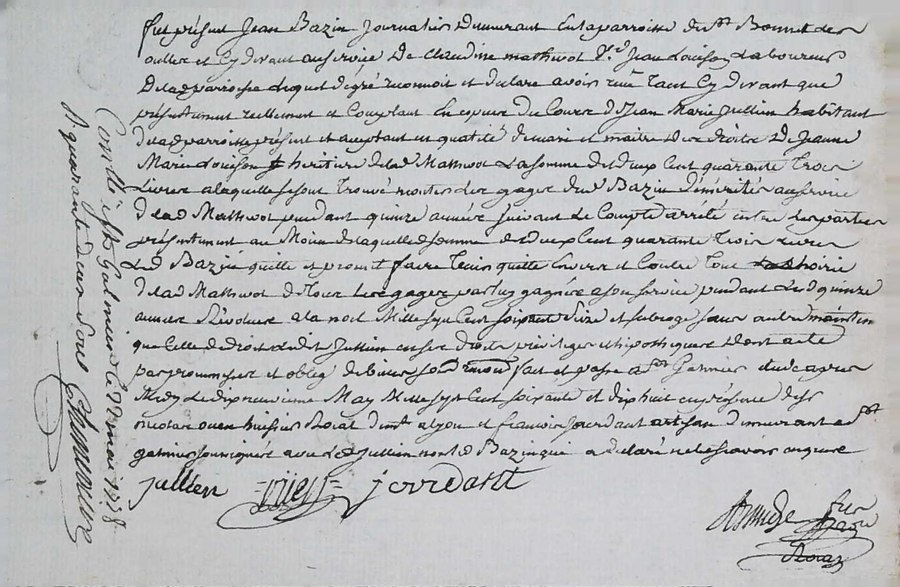 fut présent Jean Bazin Journalier Demeurant En la parroisse de st Bonnet des
oulles et Cy devant au service De Claudine mathivot Ve Jean Louison Laboureur
De lad parroisse lequel de gré reconnoit et declare avoir reçu tant Cy devant que
présentement reellement et Comptant En espece du Cours de Jean Marie Jullien habitant
de lad parroisse présent et acceptant en qualité de mari et maitre Des droits De Jeanne
Marie Louison heritiere de lad Mathivot La somme de deux Cent quarante Trois
Livres a laquelle se sont Trouvé monter les gages dud Bazin démérités au service
de lad Mathivot pendant quinze années suivant Le Compte arrété entre Les parties
présentement au Moien de laquelle de somme de deux Cent quarante Trois Livres
Led Bazin quitte et promet faire Tenir quitte Envers et Contre Tous
de lad Mathivot de Tous Les gages par luy gagnés a son service pendant lesd quinze
années Révolues a la noel Mille sept Cent soixante et subroge sans autre maintien
que Celle de droit led Jullien en ses droits privileges et hipotheques Dont acte
par promesses et oblig de biens fait et passé a st Galmier etude apres
Midy Le dix neuvieme May Mille sept Cent soixante et dix huit en présence de sr
nicolas huissier Roial et francois Jourdant artisan demeurant a st
galmier soussignés avec Led Jullien non led Bazin qui a déclaré ne le savoir enquis
jullien
jovrdant
Conllé à st Galmier le 22 mai 1778
R quarante deux sous